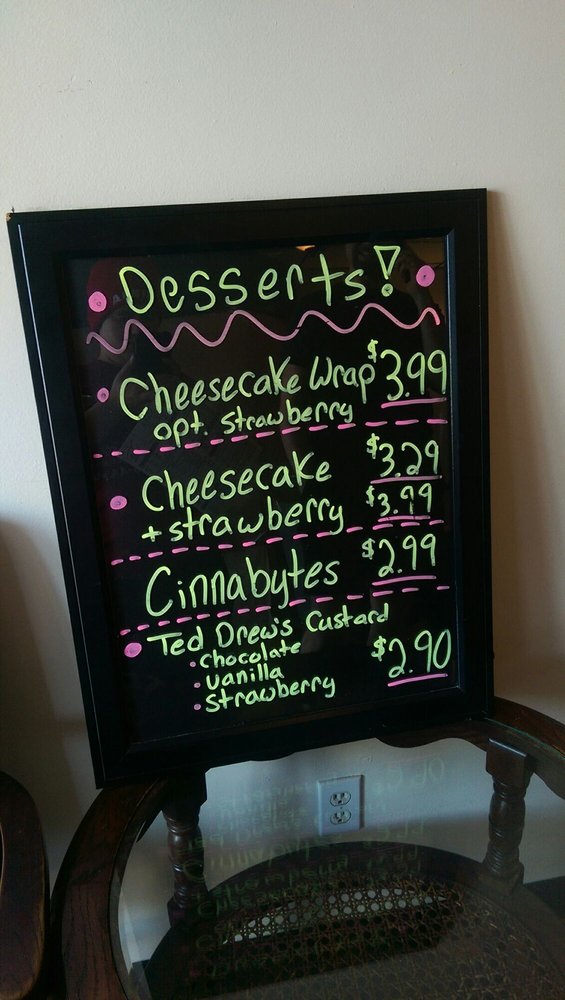 Desserts!
Cheesecake Wrap $3.99
opt. Strawberry
Cheesecake $3.29
+ strawberry $3.99
Cinnabytes $2.99
Ted Drew's Custard
• chocolate $2.90
• vanilla
• Strawberry